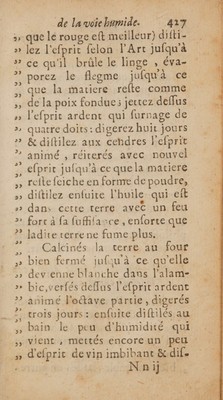 de la voie humide. 427
„ que le rouge est meilleur) disti-
„ lez l'esprit selon l'Art jusqu'à
„ ce qu'il brûle le linge, éva-
„ porez le flegme jusqu'à ce
„ que la matiere reste comme
„ de la poix fonduë; jettez dessus
„ l'esprit ardent qui surnage de
„ quatre doits: digerez huit jours
„ & distilez aux cendres l'esprit
„ animé, réïterés avec nouvel
„ esprit jusqu'à ce que la matiere
„ reste seiche en forme de poudre,
„ distilez ensuite l'huile qui est
„ dans cette terre avec un feu
„ fort à sa suffisance, ensorte que
„ ladite terre ne fume plus.
„ Calcinés la terre au four
„ bien fermé jusqu'à ce qu'elle
„ devienne blanche dans l'alam-
„ bic, versés dessus l'esprit ardent
„ animé l'octave partie, digerés
„ trois jours: ensuite distilés au
„ bain le peu d'humidité qui
„ vient, mettés encore un peu
„ d'esprit de vin imbibant & dis-
N n ij